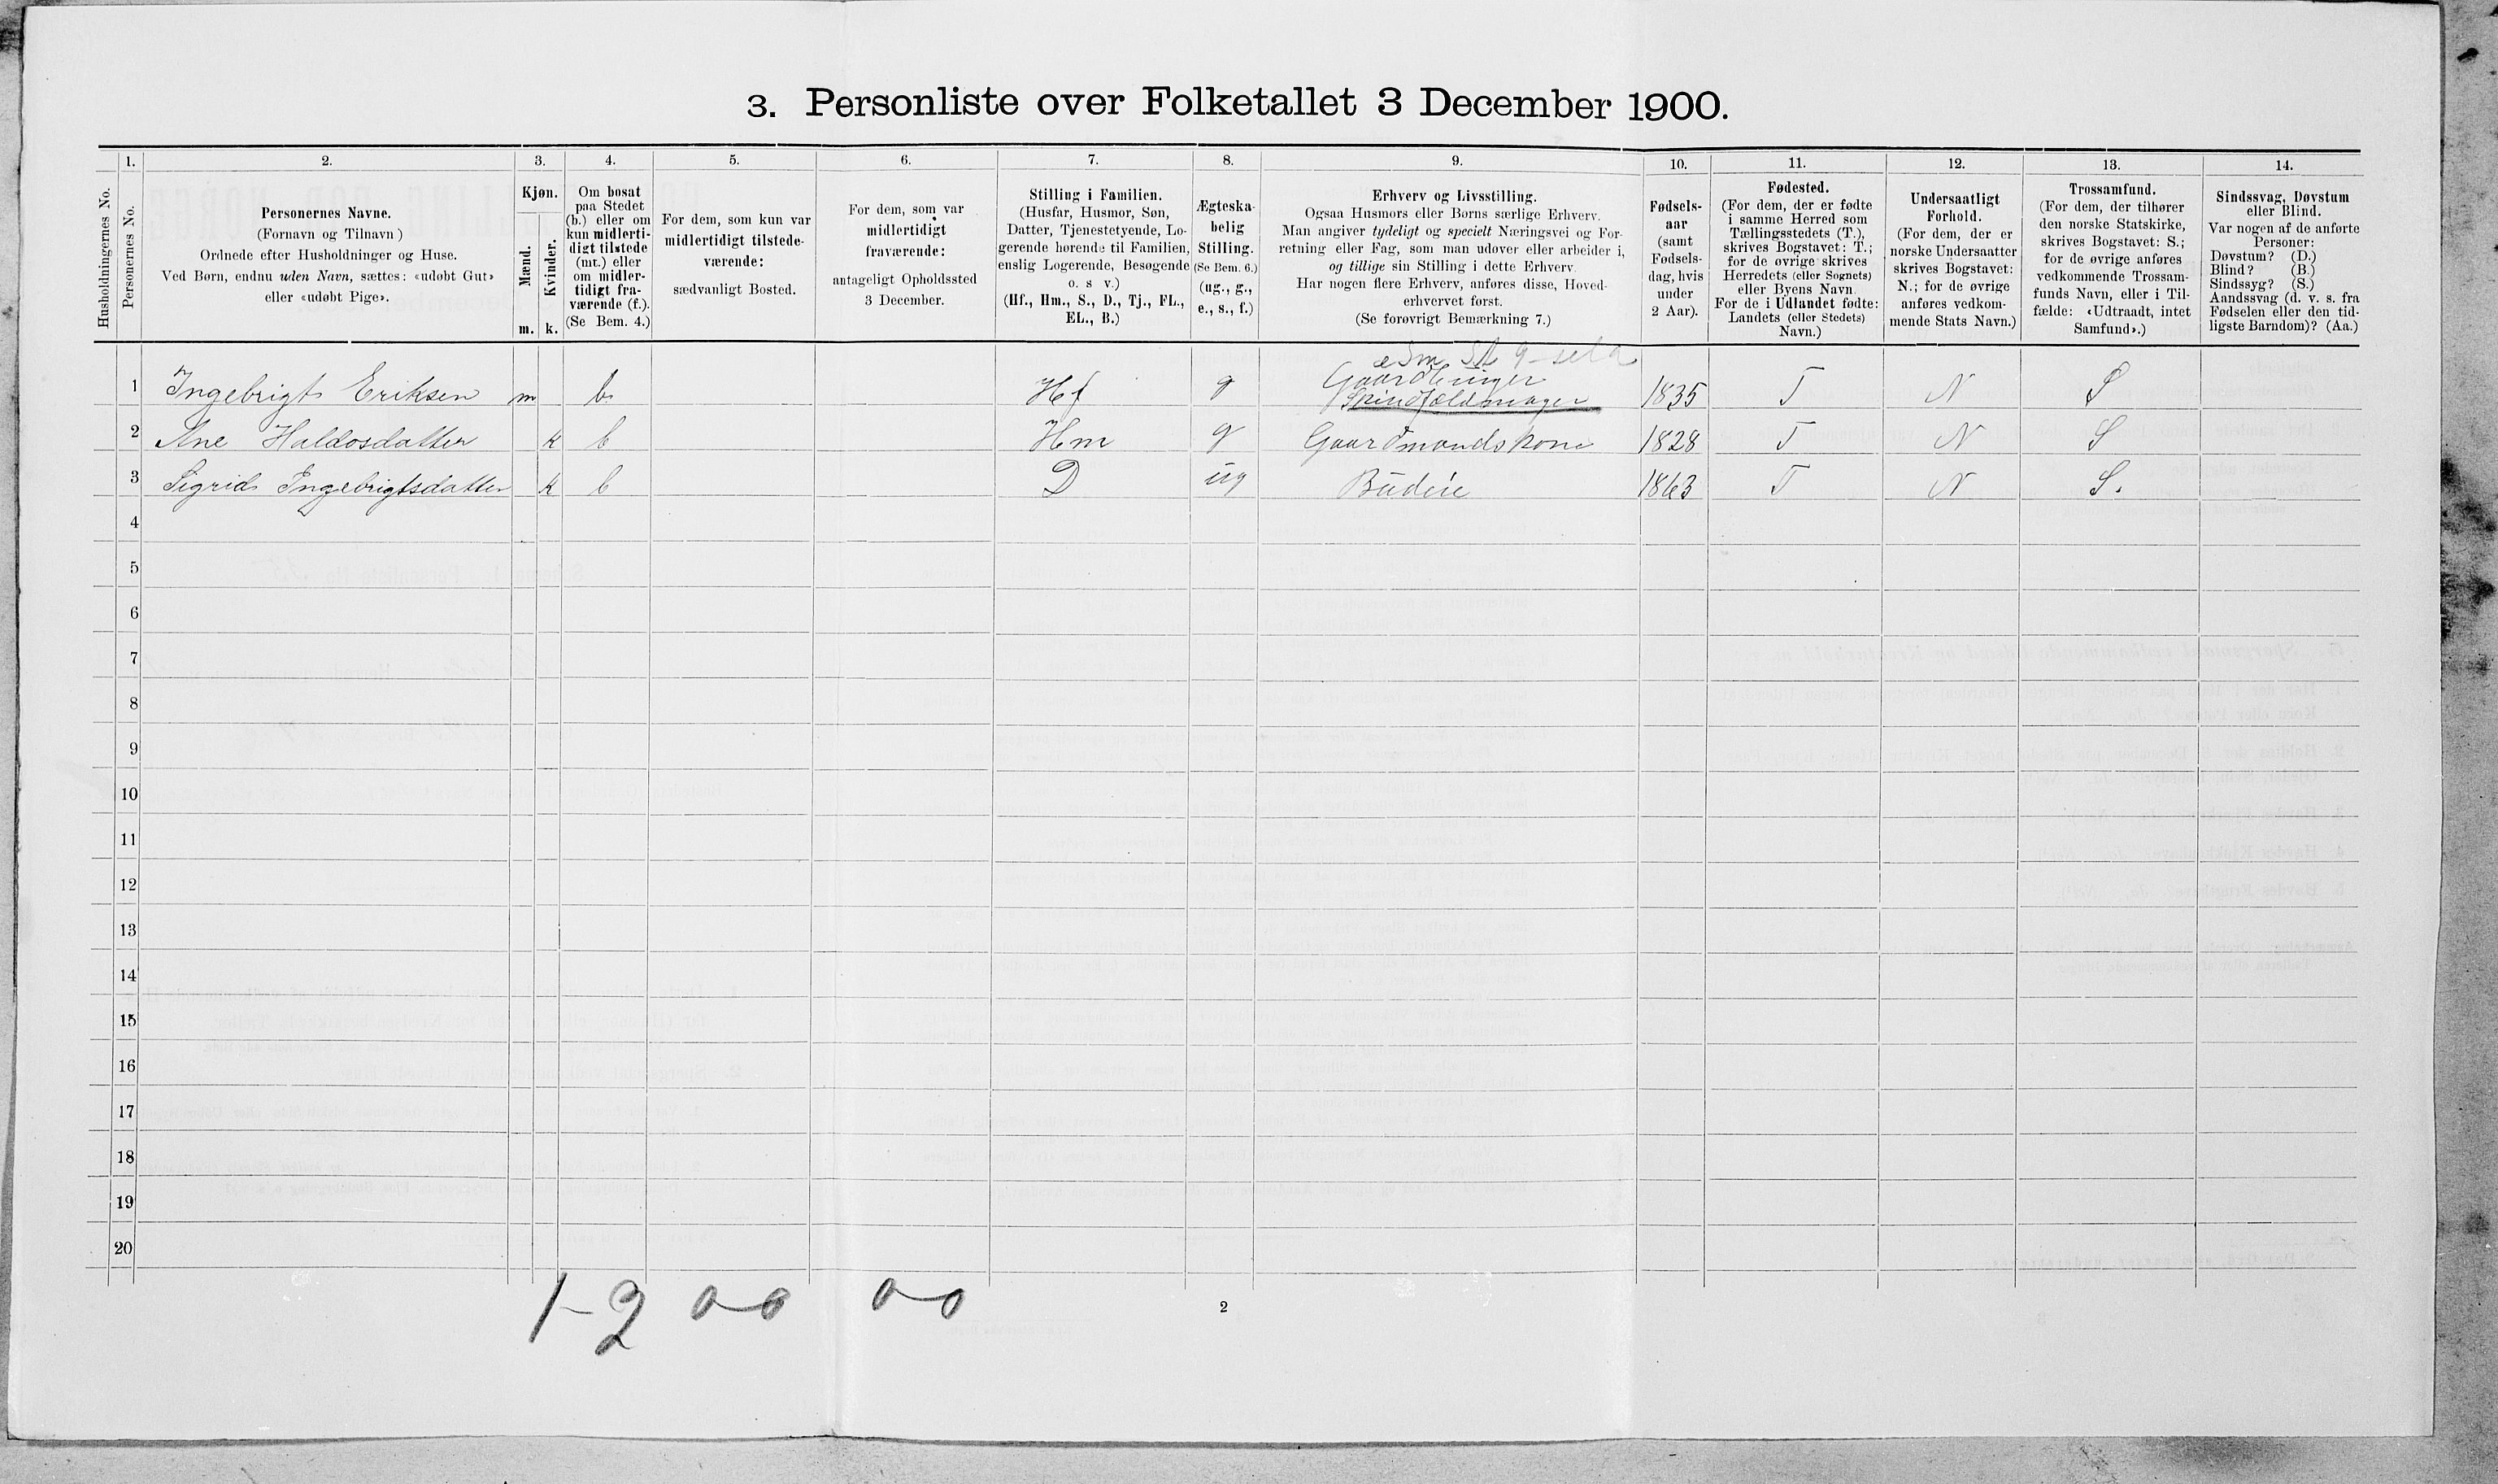 3. Personliste over Folketallet 3 December 1900.
Husholdningernes No.
1.
Personernes No.
2.
Personernes Navne.
(Fornavn og Tilnavn)
Ordnede efter Husholdninger og Huse.
Ved Børn, endnu uden Navn, sættes: «udøbt Gut»
eller «udøbt Pige».
3.
Kjøn.
Mænd.
Kvinder.
m.
k.
4.
Om bosat
paa Stedet
(b.) eller om
kun midlerti-
digt tilstede
(mt.) eller
om midler-
tidigt fra-
værende (f.).
(Se Bem. 4.)
5.
For dem, som kun var
midlertidigt tilstede-
værende:
sædvanligt Bosted.
6.
For dem, som var
midlertidigt
fraværende:
antageligt Opholdssted
3 December.
7.
Stilling i Familien.
(Husfar, Husmor, Søn,
Datter, Tjenestetyende, Lo-
gerende hørende til Familien,
enslig Logerende, Besøgende
o. s v.)
(Hf., Hm., S., D., Tj., FL.,
EL., B.)
8.
Ægteska-
belig
Stilling.
(Se Bem. 6.)
(ug., g.,
e., s., f.)
9.
Erhverv og Livsstilling.
Ogsaa Husmors eller Børns særlige Erhverv.
Man angiver tydeligt og specielt Næringsvei og For-
retning eller Fag, som man udøver eller arbeider i,
og tillige sin Stilling i dette Erhverv.
Har nogen flere Erhverv, anføres disse, Hoved-
erhvervet først.
(Se forøvrigt Bemærkning 7.)
10.
Fødsels-
aar
(samt
Fødsels-
dag, hvis
under
2 Aar).
11.
Fødested.
(For dem, der er fødte
i samme Herred som
Tællingsstedets (T.),
skrives Bogstavet: T.;
for de øvrige skrives
Herredets (eller Sognets)
eller Byens Navn.
For de i Udlandet fødte:
Landets (eller Stedets)
Navn.)
12.
Undersaatligt
Forhold.
(For dem, der er
norske Undersaatter
skrives Bogstavet:
N.; for de øvrige
anføres vedkom-
mende Stats Navn.)
13.
Trossamfund.
(For dem, der tilhører
den norske Statskirke,
skrives Bogstavet: S.;
for de øvrige anføres
vedkommende Trossam-
funds Navn, eller i Til-
fælde: «Udtraadt, intet
Samfund».)
14.
Sindssvag, Døvstum
eller Blind.
Var nogen af de anførte
Personer:
Døvstum? (D.)
Blind? (B.)
Sindssyg? (S.)
Aandssvag (d. v. s. fra
Fødselen eller den tid-
ligste Barndom)? (Aa.)
1 Ingebrigt Eriksen m b Hf g 1835 T N S
2 Ane Haldosdatter k b Hm g Gaardmandskone 1828 T N S
3 Sigrid Ingebrigtsdatter k b D ug Budeie 1863 T N S.
4
5
6
7
8
9
10
11
12
13
14
15
16
17
18
19
20
1-2 0-0 0-0
2